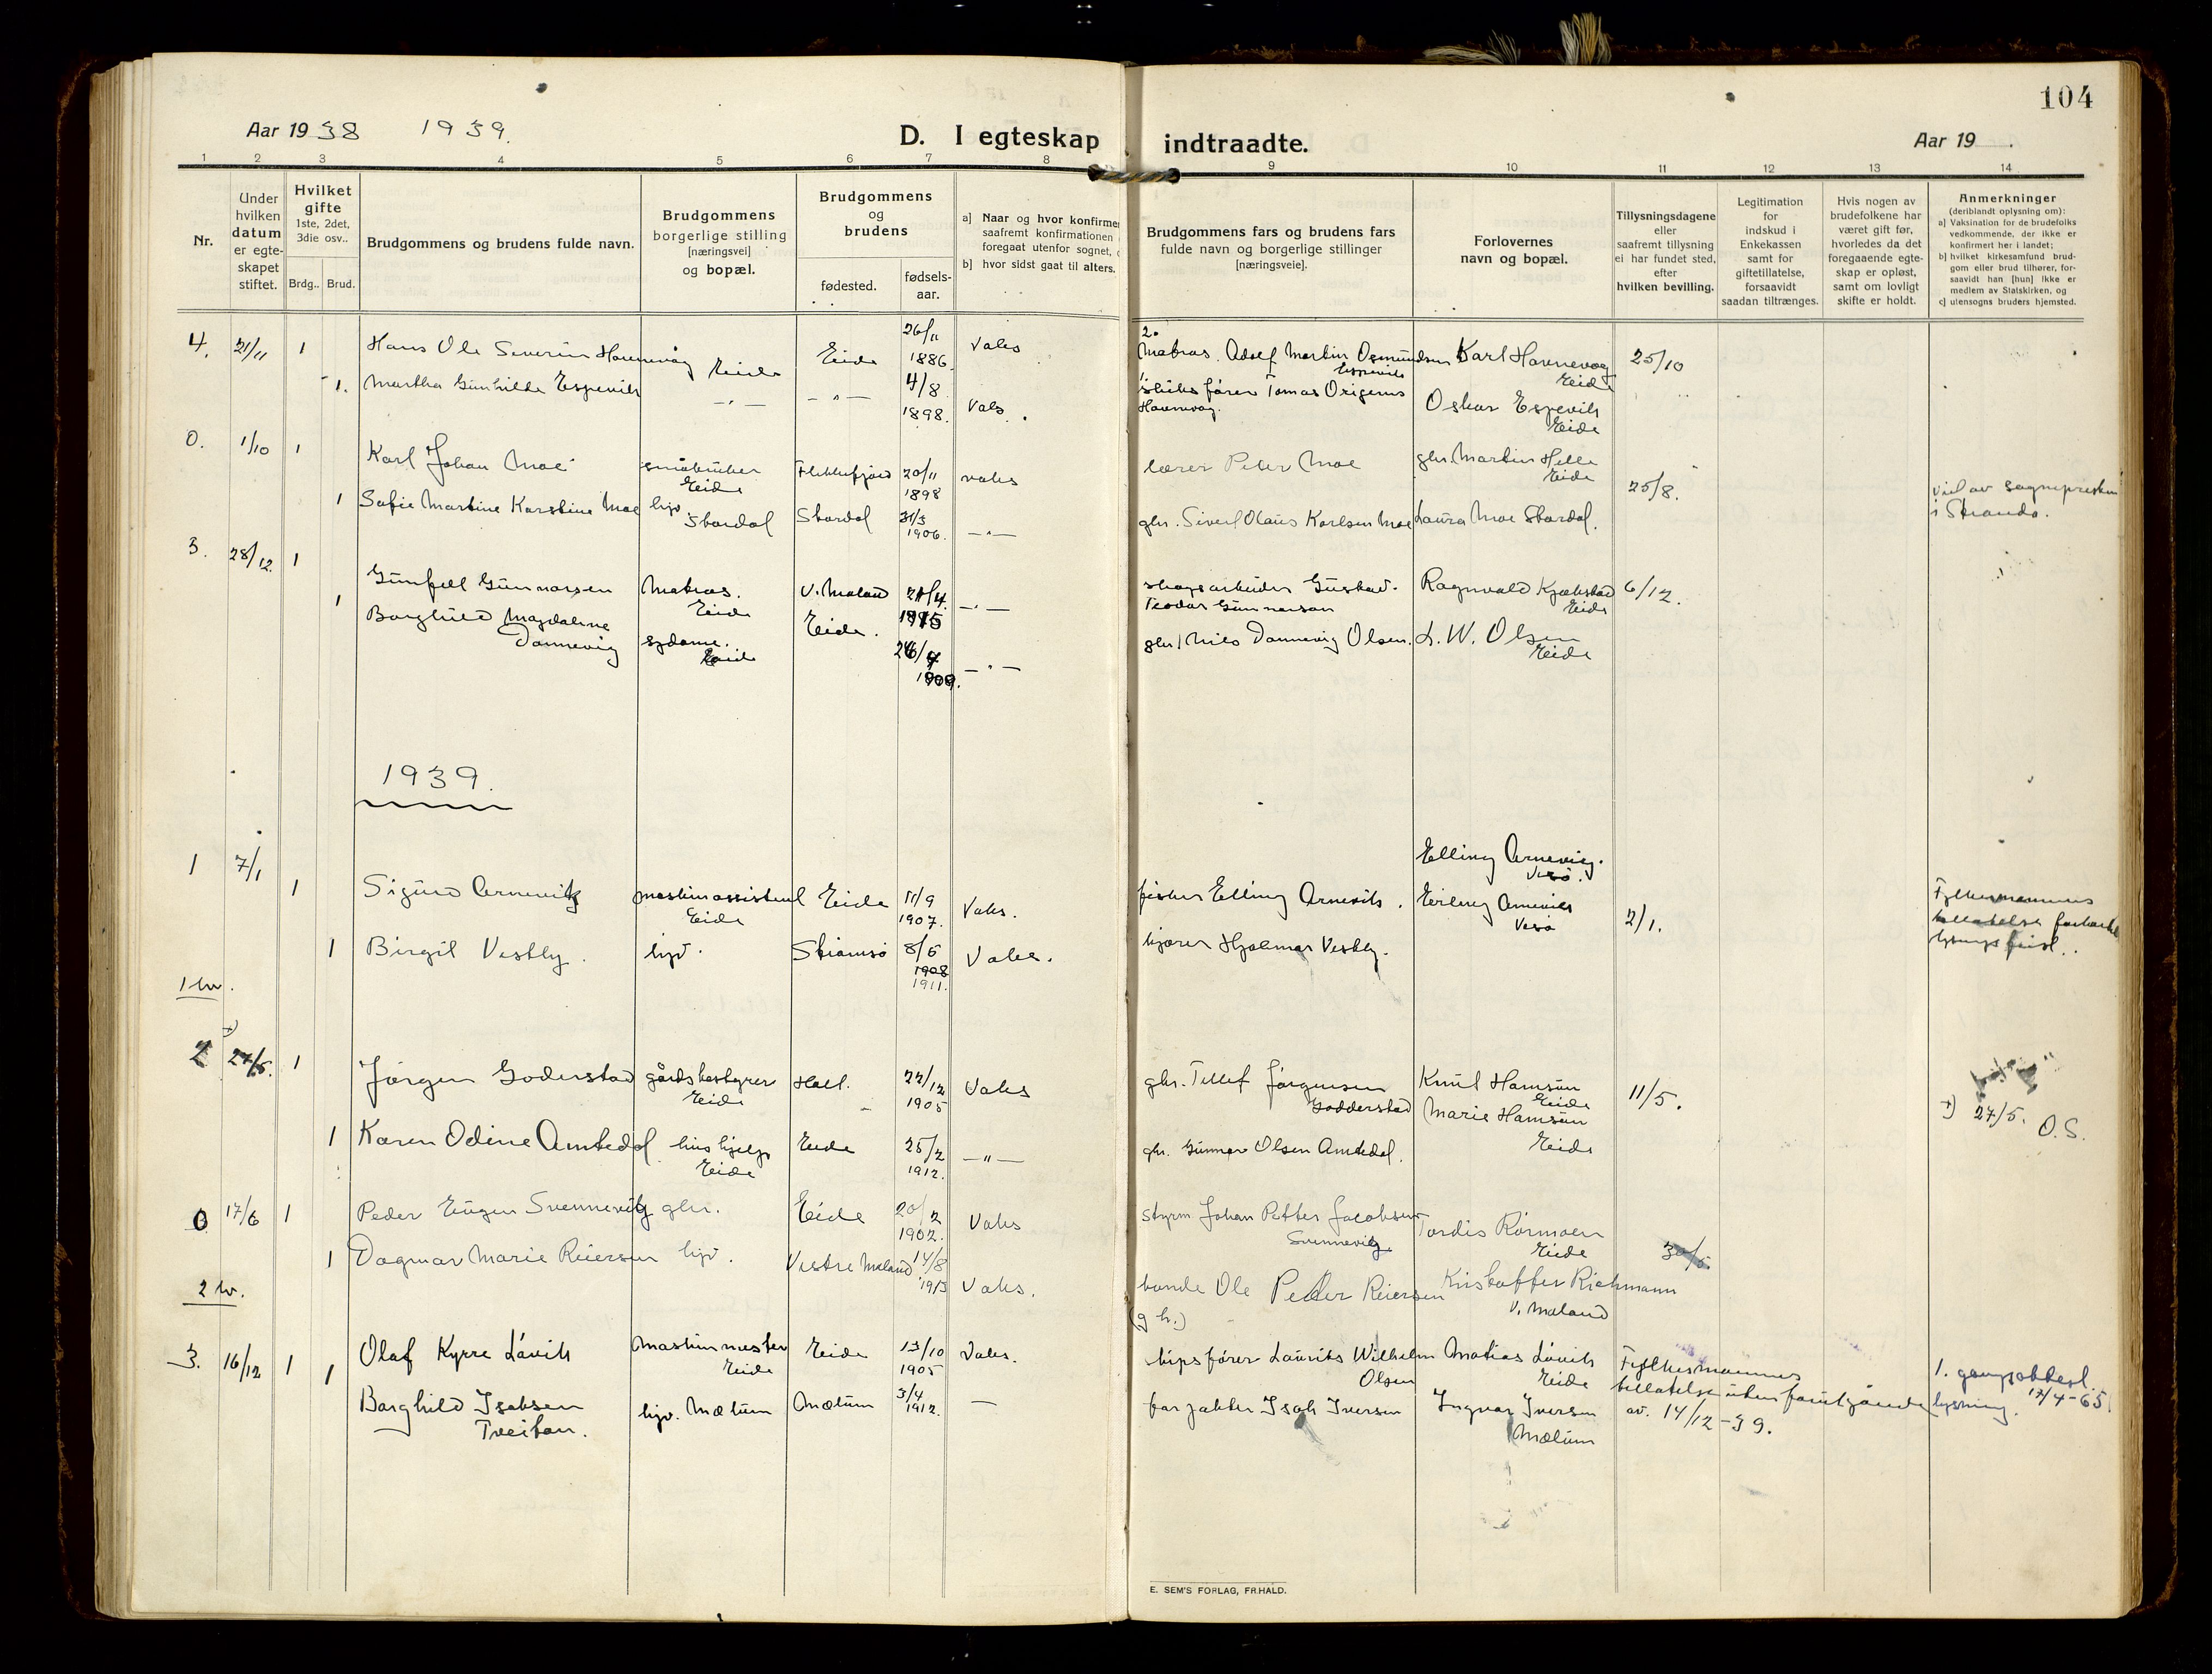 104
Aar 1938 1939.
D. I egteskap indtraadte.
Aar 19 .
1 2 3 4 5 6 7 8 9 10 11 12 13 14
Nr.
Under hvilken datum er egte- skapet stiftet.
Hvilket gifte 1ste, 2det, 3die osv..
Brdg.. Brud.
Brudgommens og brudens fulde navn.
Brudgommens borgerlige stilling [næringsvei] og bopæl.
Brudgommens og brudens
fødested.
fødsels- aar.
a] Naar og hvor konfirmer
saafremt konfirmationen
foregaat utenfor sognet,
b] hvor sidst gaat til alters.
Brudgommens fars og brudens fars fulde navn og borgerlige stillinger [næringsveie].
Forlovernes navn og bopæl.
Tillysningsdagene eller saafremt tillysning ei har fundet sted, efter hvilken bevilling.
Legitimation for indskud i Enkekassen samt for giftetillatelse, forsaavidt saadan tiltrænges.
Hvis nogen av brudefolkene har været gift før, hvorledes da det foregaaende egte- skap er opløst, samt om lovligt skifte er holdt.
Anmerkninger (deriblandt oplysning om): a] Vaksination for de brudefolks vedkommende, der ikke er konfirmert her i landet; b] hvilket kirkesamfund brud- gom eller brud tilhører, for- saavidt han [hun] ikke er medlem av Statskirken, og c] utensogns bruders hjemsted.
4. 21/11 1 Hans Ole Severin Havnevåg Eide Eide 26/11 1886. Vaks
2. Matros. Adolf Martin Osmundsen Espevik Karl Havnevåg Eide 25/10
1. Martha Gunhilde Espevik — " — — " — 4/8 1898. Vaks.
1. skibsfører Tomas Origenus Havnevåg. Oskar Espevik Eide
0. 1/10 1 Karl Johan Moe småbruker Eide Flekkefjord 20/11 1898 vaks
lærer Peter Moe gbr. Martin Helle Eide 25/8.
1 Sofie Martine Karstine Moe hjv. Stordal Stordal 31/3 1906. — " —
gbr. Sivert Olaus Karlsen Moe Laura Moe Stordal.
Viet av sognepresten i Stranda.
3. 28/12. 1 Gunfell Gunnarsen Matros. Eide V. Moland 21/4. — " —
skogsarbeider Gustav. Teodor Gunnarson Ragnvald Kjebstad Eide 6/12.
1 Borghild Magdalene Dannevig sydame. Eide Eide. — " —
gbr. Nils Dannevig Olsen. L. W. Olsen Eide
1939.
1 7/1 1 Sigurd Arnevik maskinassistent Eide Eide 11/9 1907. Vaks.
fisker Elling Arnevik. Elling Arnevig. Vesø. Erling Arnevik Vesø 2/1.
1 Birgit Vestby. hjv. 8/5 1908 1911. Vaks.
kjører Hjalmar Vestby.
Fylkesmannens tillatelse forkortet lysningsfrist..
1 tv.
2 27/5. 1 Jørgen Goderstad gårdsbestyrer Eide Holt. 22/12 1905 Vaks
gbr. Tellef Jørgensen Godderstad Knut Hamsun Eide Marie Hamsun Eide 11/5.
+) 27/5. O.S.
1 Karen Odine Amtedal hushjelp Eide Eide 25/2 1912. — " —
gbr. Gunnar Olsen Amtedal.
0 17/6 1 Peder Eugen Svennevig gbr. Eide 20/2 1902. Vaks
styrm Johan Petter Jacobsen Svennevig Tordis Rørmoen Eide 30/5
1 Dagmar Marie Reiersen hjv. Vestre Moland 14/8 1913 Vaks.
bonde Ole Peder Reiersen (g b.) Kristoffer Richmann V. Moland
2 tv.
3. 16/12 1 Olaf Kyrre Løvik Maskinmester Eide Eide 13/10 1905 Vaks.
skipsfører Laurits Wilhelm Olsen Matias Løvik Eide
Fylkesmannens tillatelse uten forutgående lysning av. 14/12-39.
1. gangsattest 17/4-65.
1 Borghild Isaksen Tveitan. hjv. Mælum Mælum 3/4 1912. —
forpakter Isak Iversen Ingvar Iversen Mælum
E. SEM'S FORLAG, FR.HALD.